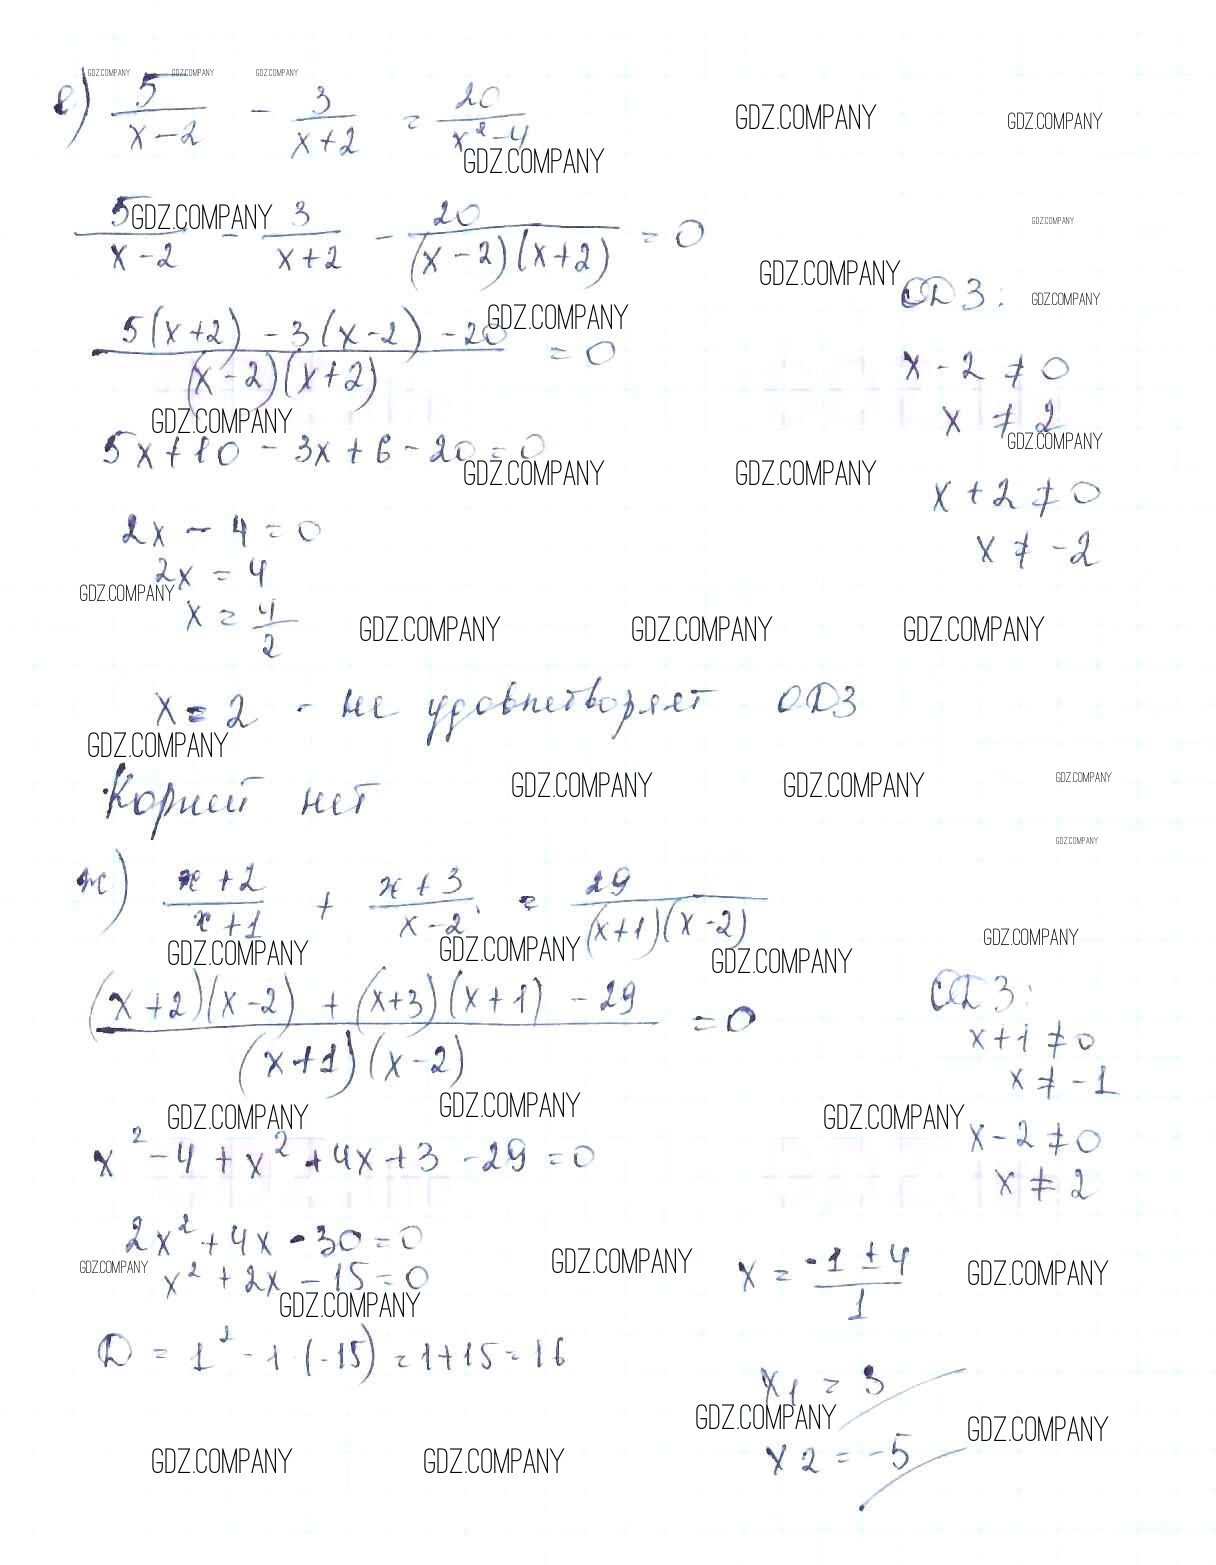 GDZ.COMPANY GDZ.COMPANY GDZ.COMPANY
е) 5/(x-2) - 3/(x+2) = 20/(x²-4)
GDZ.COMPANY GDZ.COMPANY
GDZ.COMPANY
GDZ.COMPANY GDZ.COMPANY
5/(x-2) - 3/(x+2) - 20/((x-2)(x+2)) = 0
GDZ.COMPANY
ОДЗ: GDZ.COMPANY
GDZ.COMPANY
(5(x+2) - 3(x-2) - 20)/((x-2)(x+2)) = 0
x - 2 ≠ 0
x ≠ 2
GDZ.COMPANY GDZ.COMPANY
5x+10 - 3x+6-20=0
GDZ.COMPANY GDZ.COMPANY
x + 2 ≠ 0
x ≠ -2
2x - 4 = 0
2x = 4
GDZ.COMPANY
x = 4/2
GDZ.COMPANY GDZ.COMPANY GDZ.COMPANY
x = 2 - не удовлетворяет ОДЗ
GDZ.COMPANY
Корней нет
GDZ.COMPANY GDZ.COMPANY GDZ.COMPANY
GDZ.COMPANY
ж) (x+2)/(x+1) + (x+3)/(x-2) = 29/((x+1)(x-2))
GDZ.COMPANY GDZ.COMPANY GDZ.COMPANY GDZ.COMPANY
((x+2)(x-2) + (x+3)(x+1) - 29)/((x+1)(x-2)) = 0
ОДЗ:
x+1 ≠ 0
x ≠ -1
GDZ.COMPANY GDZ.COMPANY GDZ.COMPANY
x-2 ≠ 0
x ≠ 2
x² - 4 + x² + 4x + 3 - 29 = 0
2x² + 4x - 30 = 0
GDZ.COMPANY
x² + 2x - 15 = 0
GDZ.COMPANY GDZ.COMPANY GDZ.COMPANY
D = 1² - 1·(-15) = 1+15 = 16
x = (-1 ± 4)/1
x1 = 3
GDZ.COMPANY GDZ.COMPANY
x2 = -5
GDZ.COMPANY GDZ.COMPANY